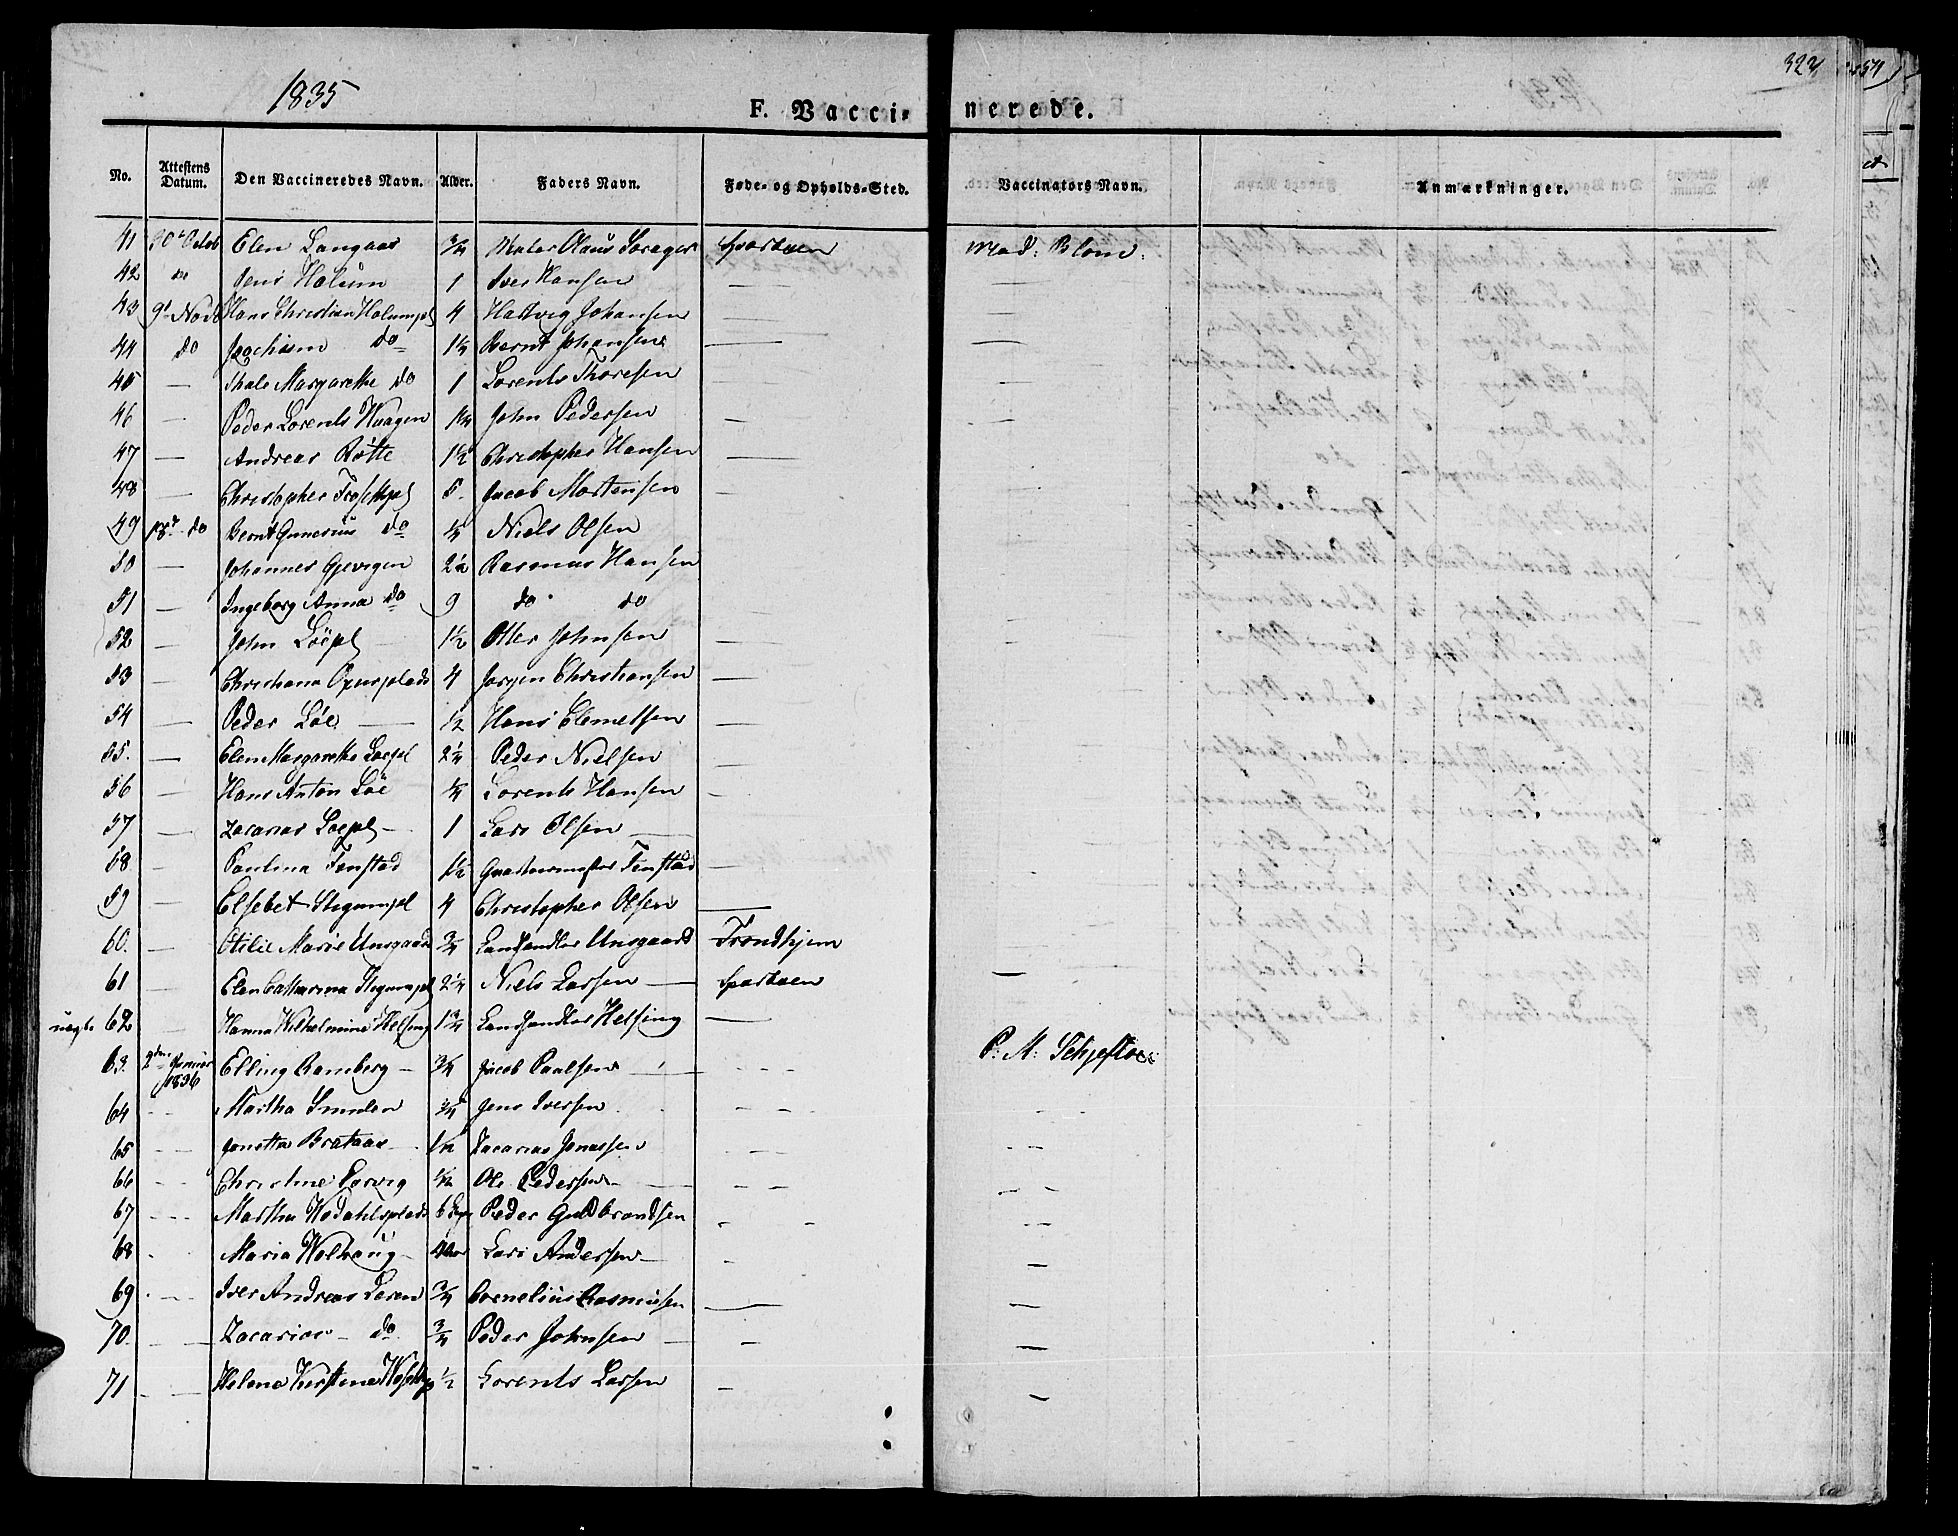 1835
322
F. Vacci- nerede.
No. Attestens Datum. Den Vaccineredes Navn. Alder. Faders Navn. Føde- og Opholds-Sted. Vaccinators Navn. Anmærkninger.
41 30 Octob Elen Langaas 3/4 Olaus Sparboen Mad. Blom.
42 do Jens Holum 1 Iver Hansen —
43 9d Novb Hans Christian Holumpl 4 Hartvig Johansen —
44 do Jochium do 1 1/4 Bernt Johansen —
45 — Thale Margarethe do 1 Lorents Thoresen —
46 — Peder Lorents Waagen 1 1/4 John Pedersen —
47 — Andreas Rötte 1 1/2 Christopher Hansen —
48 — Christopher 5 Jacob Mortensen —
49 18d do Bernt Gunerius do 1/4 Niels Olsen
50 — Johannes Gjevigen 2 1/2 Rasmus Hansen
51 — Ingeborg Anna do 9 do do
52 — John Löepl 1 1/2 Otter Johnsen —
53 — Christiana Opemplads 4 Jorgen Christiansen —
54 — Peder Löe 1/2 Hans Clemetsen —
55. — Elen Margarethe Loepl 2 1/4 Peder Nielsen —
56 — Hans Anton Löe 1/4 Lorents Hansen —
57 — Zacarias Loepl 1 Lars Olsen —
58 — Paulina Fenstad 1 1/2 Fenstad —
59 — Elsebet Stegumpl 4 Christopher Olsen —
60. — Otilie Marie Unsgaard 3/4 Landhandler Unsgaard Trondhjem
61 — Elen Catharina Stegumpl 2 1/4 Niels Larsen — Sparboen —
uægte 62 — Hanna Wilhelmine Helsing 1 3/4 Landhandler Helsing —
63. 2den Januar 1836 Elling Ramberg 3/4 Jacob Paulsen — P: M: Schjeflo
64 — Martha 3/4 Jens Iversen
65 — Jonetta Brataas 1/2 Zacarias Jonassen
66 — Christine 1/2 Ole Pedersen —
67 — Martha Wodahlsplads 6 Peder Guldbrandsen
68 Maria 4 Aar Lars Andersen —
69 Iver Andreas Loren 3/4 Cornelius Rasmusen —
70. — Zacarias do 3/4 Peder Johnsen —
71 — Helena Kirstina 1/2 Lorents Larsen —